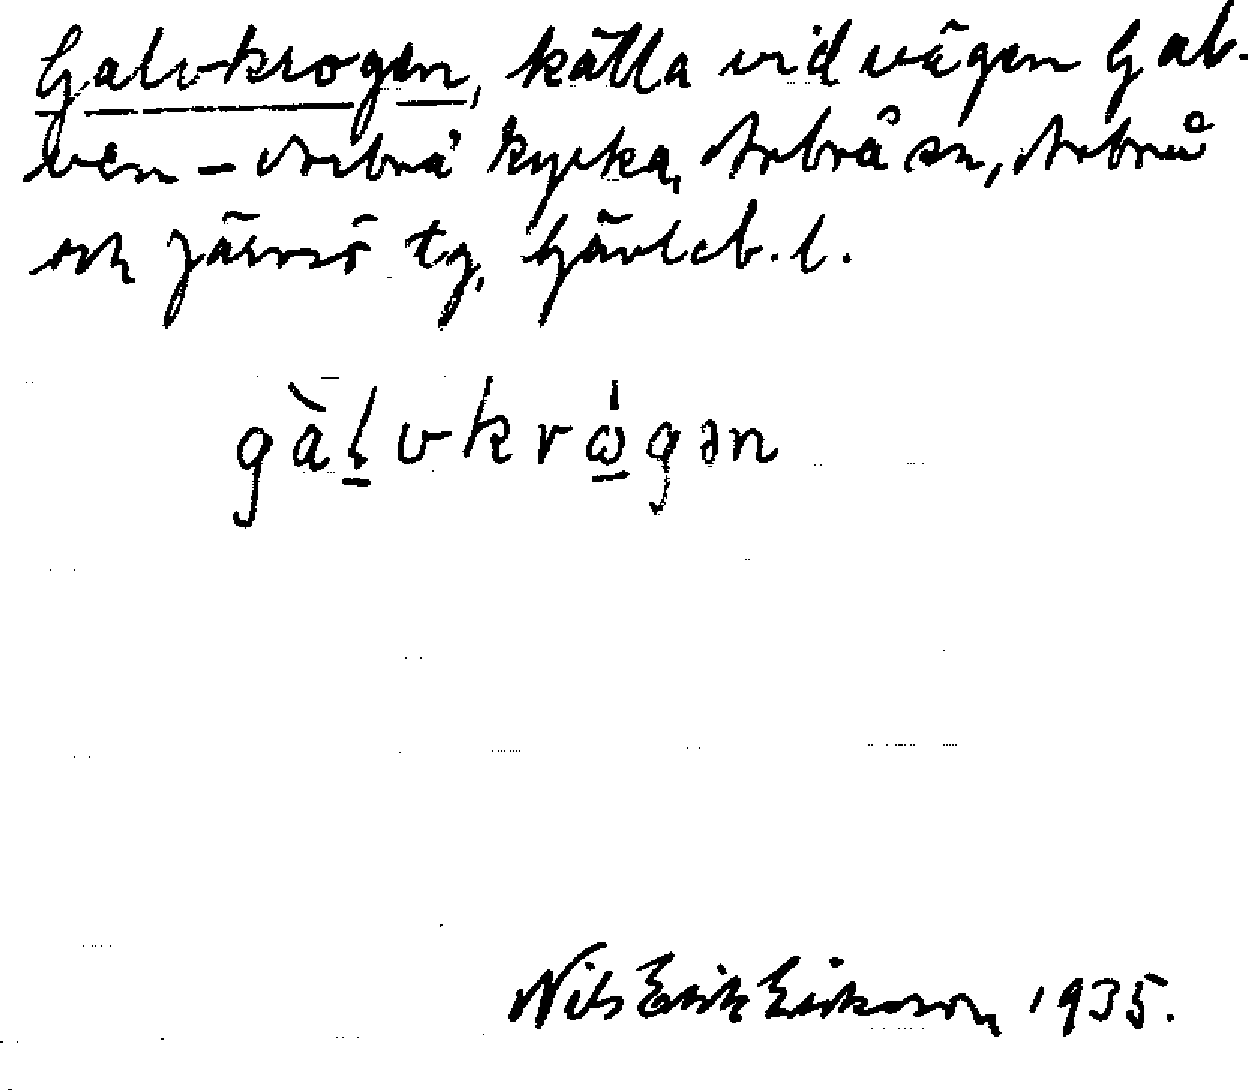 Galvkrogen, källa vid vägen Gal-
ven - Arbrå kyrka, Arbrå sn, Arbrå
och Järvsö tg, Gävleb. l.
gàḷvkrώ̲gən
Nils Erik Eriksson 1935.